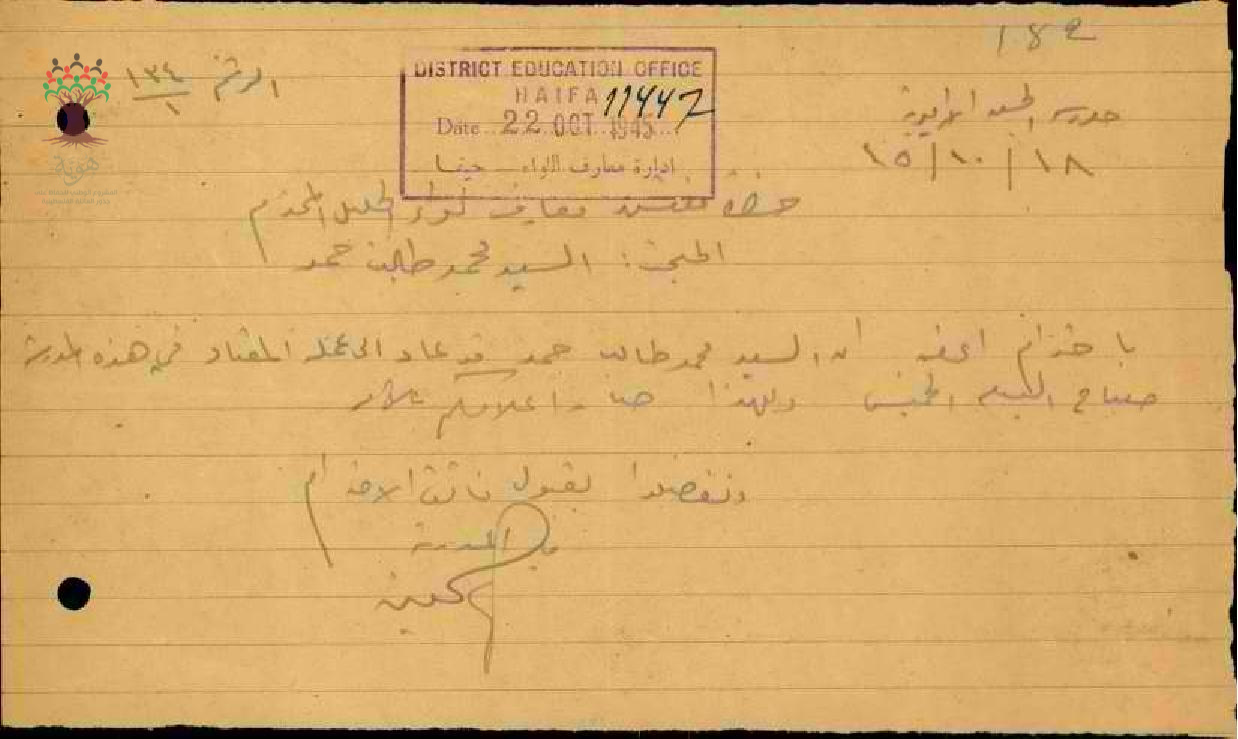 182
الرقم ١٣٤/١
DISTRICT EDUCATION OFFICE
HAIFA 11447
Date 22 OCT 1945
ادارة معارف اللواء — حيفا
مدرسة
١٨/١٠/١٥
حضرة مفتش معارف لواء الجليل المحترم
المبحث: السيد محمد طالب حمد
باحترام اعرض ان السيد محمد طالب حمد قد عاد الى عمله المعتاد في هذه المدرسة
صباح الخميس ولهذا صار اعلامكم
وتفضلوا بقبول فائق الاحترام
المدرسة
هوية